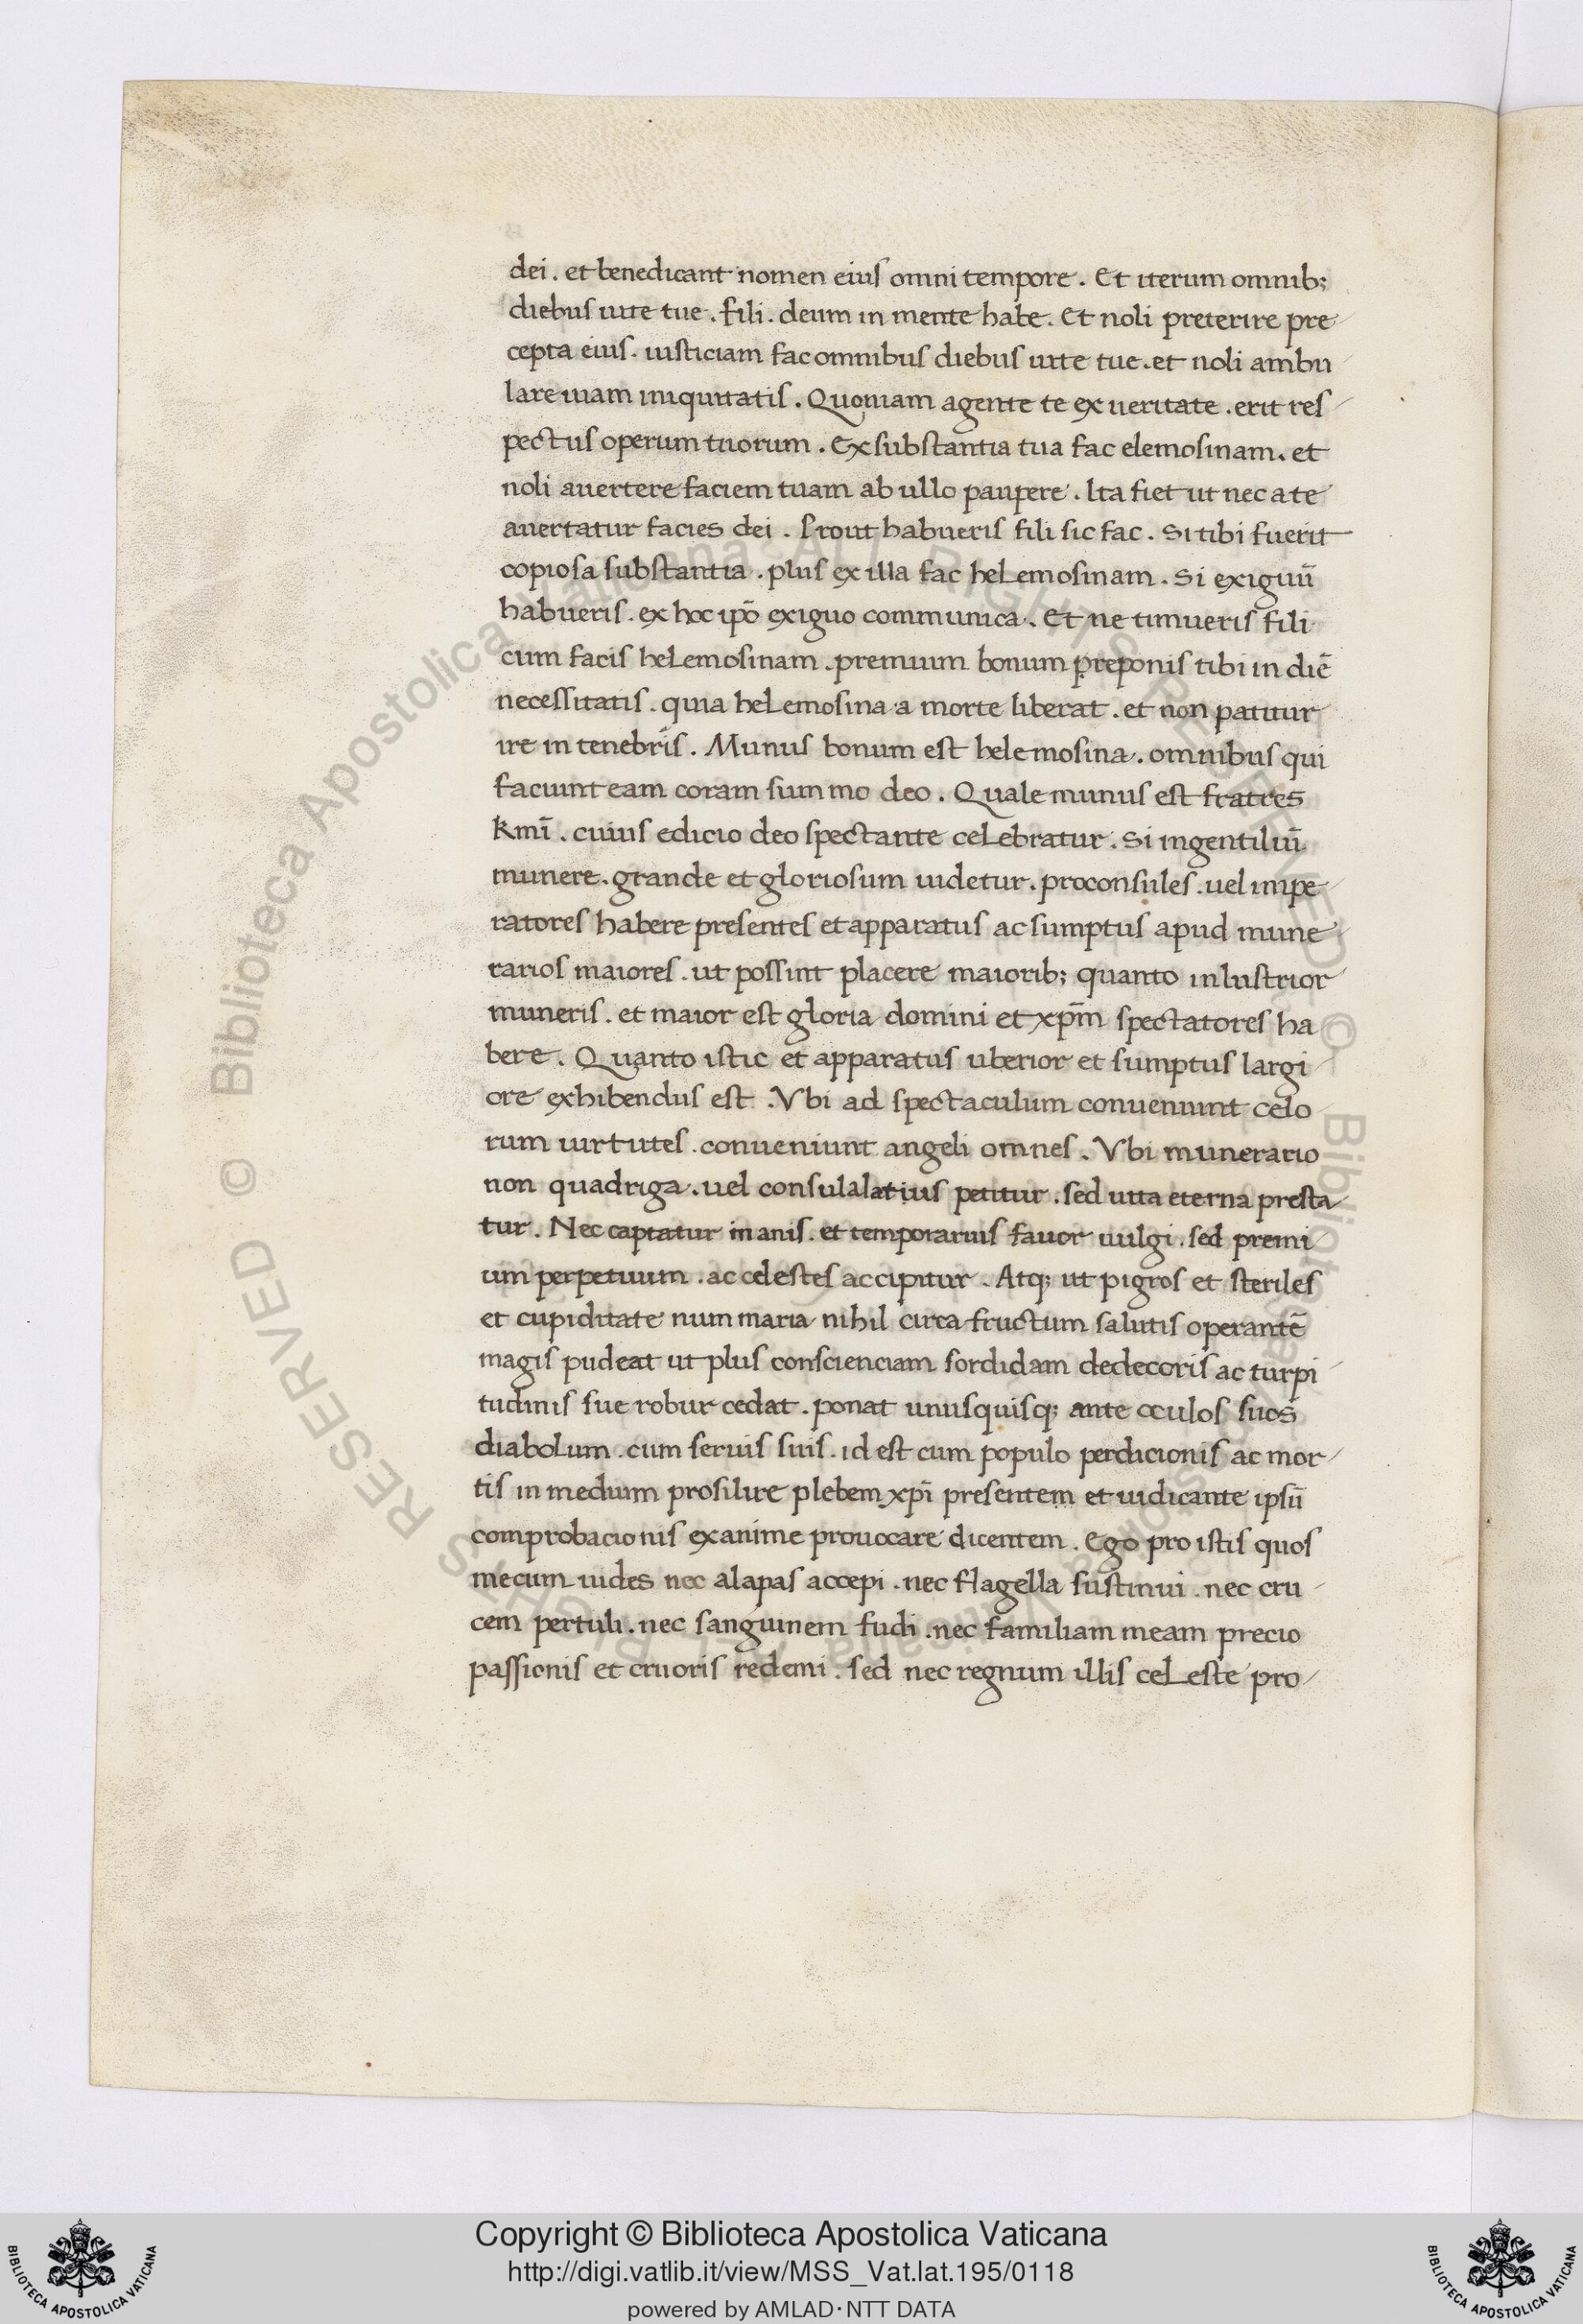 dei. et benedicant nomen eius omni tempore. Et iterum omnib;
diebus uite tue. fili. deum in mente habe. Et noli preterire pre
cepta eius. iusticiam fac omnibus diebus uite tue. et noli ambu
lare uiam iniquitatis. Quoniam agente te ex ueritate. erit res
pectus operum tuorum. Ex substantia tua fac elemosinam. et
noli auertere faciem tuam ab ullo paupere. Ita fiet ut nec a te
auertatur facies dei. Prout habueris fili sic fac. Si tibi fuerit
copiosa substantia. plus ex illa fac helemosinam. Si exiguū
habueris. ex hoc ipō exiguo communica. Et ne timueris fili
cum facis helemosinam. premium bonum preponis tibi in diē
necessitatis. quia helemosina a morte liberat. et non patitur
ire in tenebris. Munus bonum est helemosina. omnibus qui
faciunt eam coram summo deo. Quale munus est fratres
kmī. cuius edicio deo spectante celebratur. Si in gentiliū
munere. grande et gloriosum uidetur. proconsules. uel impe
ratores habere presentes et apparatus ac sumptus apud mune
rarios maiores. ut possint placere maiorib; quanto inlustrior
muneris. et maior est gloria domini et xp̄m spectatores ha
bere. Quanto istic et apparatus uberior et sumptus largi
ore exhibendus est. Vbi ad spectaculum conueniunt celo
rum uirtutes. conueniunt angeli omnes. Vbi munerario
non quadriga. uel consulalatius petitur. sed uita eterna presta
tur. Nec captatur inanis. et temporarius fauor uulgi. sed premi
um perpetuum. ac celestes accipitur. Atq; ut pigros et steriles
et cupiditate nummaria nihil circa fructum salutis operantē
magis pudeat ut plus conscienciam sordidam dedecoris ac turpi
tudinis sue robur cedat. ponat unusquisq; ante oculos suos
diabolum. cum seruis suis. id est cum populo perdicionis ac mor
tis in medium prosilire plebem xpī presentem et uidicante ipsū
comprobacionis exanime prouocare dicentem. Ego pro istis quos
mecum uides nec alapas accepi. nec flagella sustinui. nec cru
cem pertuli. nec sanguinem fudi. nec familiam meam precio
passionis et cruoris redemi. sed nec regnum illis celeste pro
Copyright © Biblioteca Apostolica Vaticana
http://digi.vatlib.it/view/MSS_Vat.lat.195/0118
powered by AMLAD·NTT DATA
BIBLIOTECA APOSTOLICA VATICANA
BIBLIOTECA APOSTOLICA VATICANA